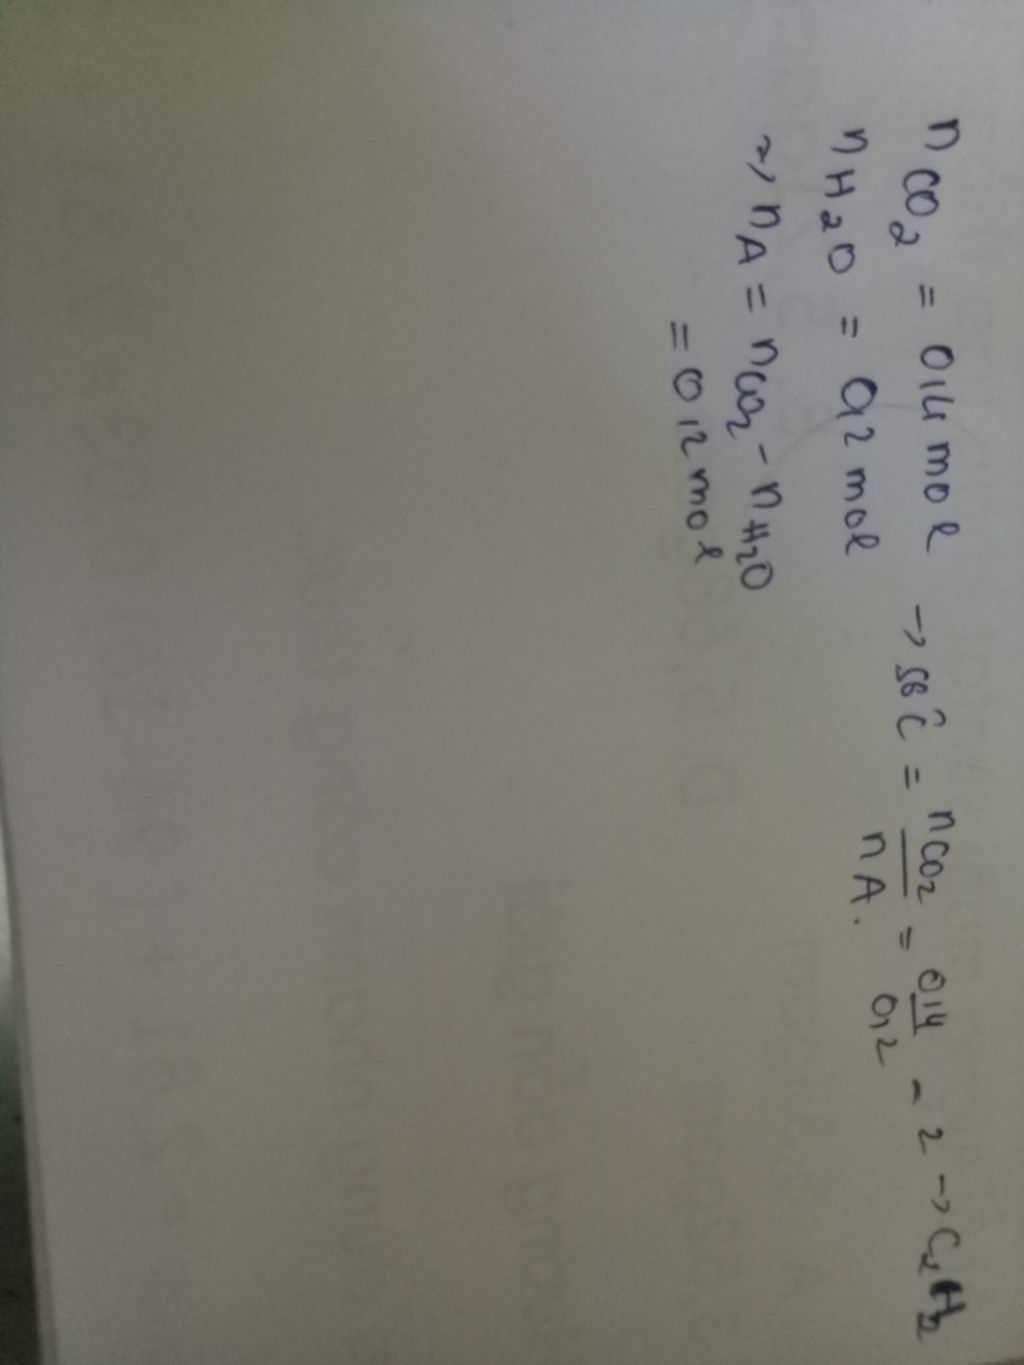 n CO2 = 0,4 mol → số C = nCO2 / nA. = 0,4 / 0,2 = 2 → C2H2
n H2O = 0,2 mol
→ nA = nCO2 - nH2O
= 0,2 mol